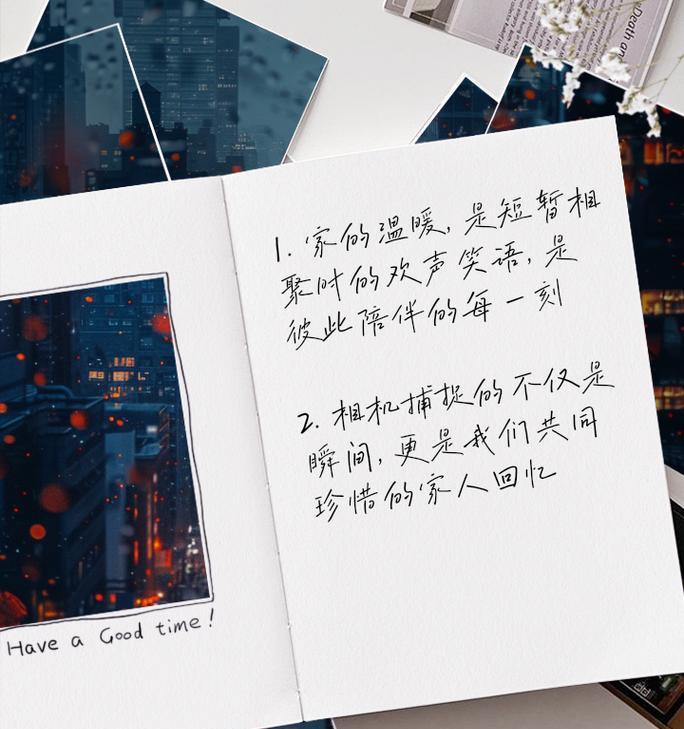 Death an
1. 家的温暖, 是短暂相
聚时的欢声笑语, 是
彼此陪伴的每一刻
2. 相机捕捉的不仅是
瞬间, 更是我们共同
珍惜的家人回忆
Have a Good time!